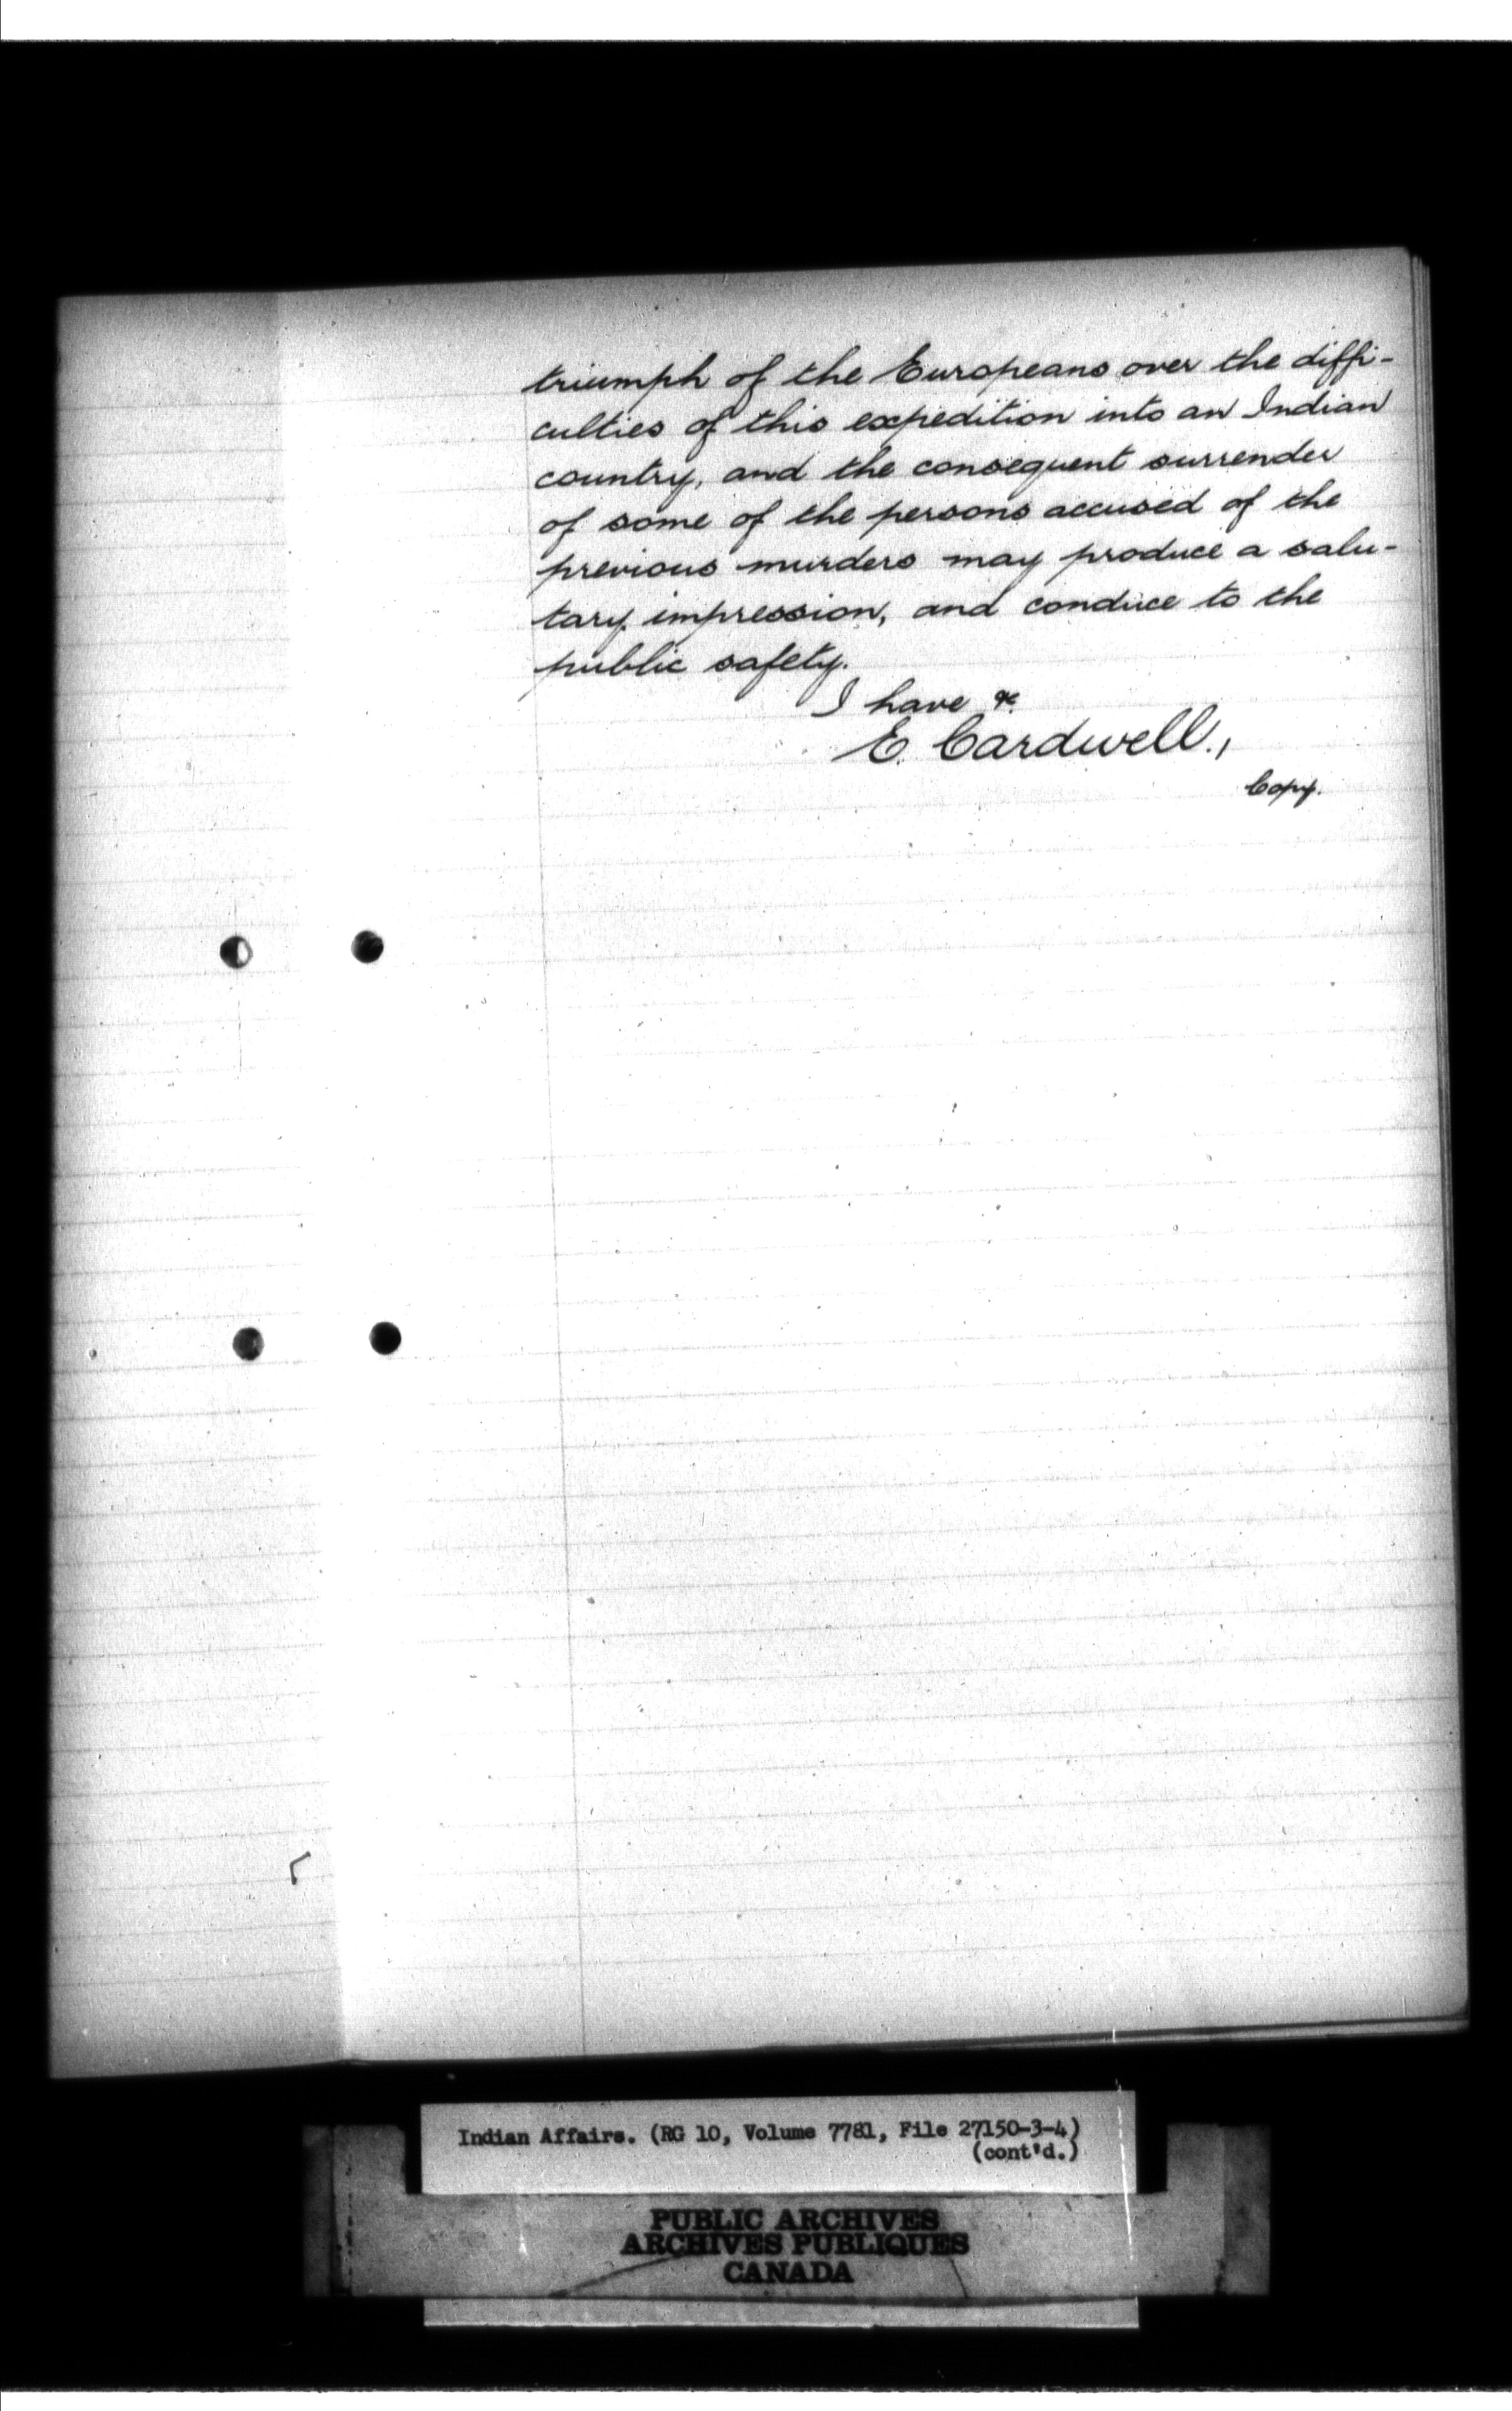 triumph of the Europeans over the diffi-
culties of this expedition into an Indian
country, and the consequent surrender
of some of the persons accused of the
previous murders may produce a salu-
tary impression, and conduce to the
public safety.
I have &c.
E. Cardwell.,
Copy.
Indian Affairs. (RG 10, Volume 7781, File 27150-3-4)
(cont'd.)
PUBLIC ARCHIVES
ARCHIVES PUBLIQUES
CANADA